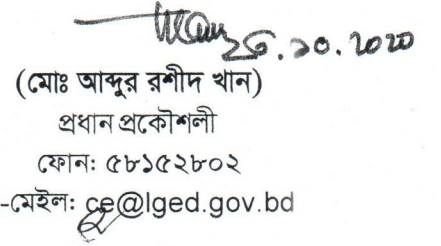 ২৬.১০.২০২০
(মোঃ আব্দুর রশীদ খান)
প্রধান প্রকৌশলী
ফোন: ৫৮১৫২৮০২
-মেইল: ce@lged.gov.bd